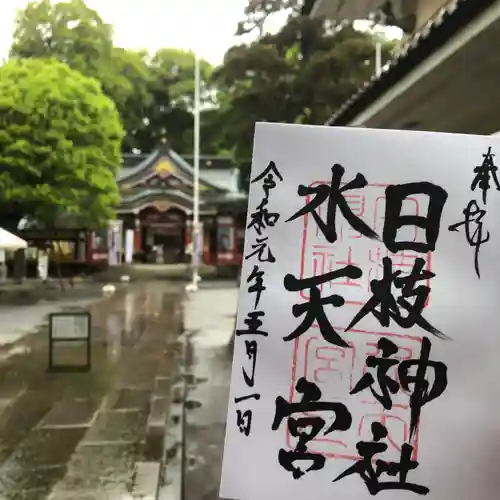 奉拝
日枝神社
水天宮
令和元年五月一日